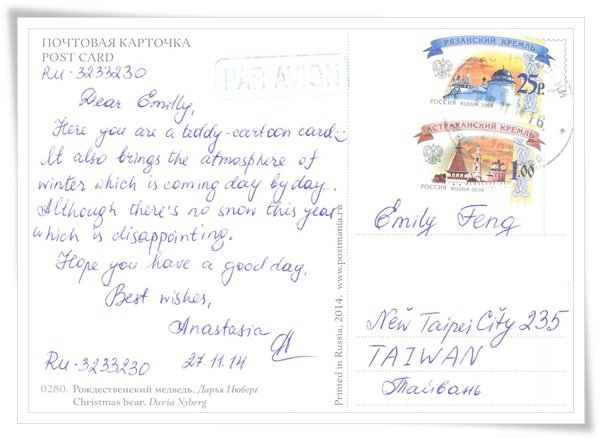 ПОЧТОВАЯ КАРТОЧКА
POST CARD
RU-3233230
PAR AVION
Dear Emilly,
Here you are a teddy-cartoon card :)
It also brings the atmosphere of
winter which is coming day by day..
Although there's no snow this year
which is disappointing.
Hope you have a good day,
Best wishes,
Anastasia
RU-3233230 27.11.14
0280. Рождественский медведь. Дарья Нюберг
Christmas bear. Daria Nyberg
Printed in Russia. 2014. www.postmania.ru
РЯЗАНСКИЙ КРЕМЛЬ
25р.
РОССИЯ RUSSIA 2009
16
АСТРАХАНСКИЙ КРЕМЛЬ
1.00
РОССИЯ RUSSIA 2009
Emily Feng
New Taipei City 235
TAIWAN
Тайвань